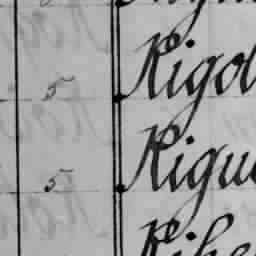 5 Rigol
5 Rigu
Ribe